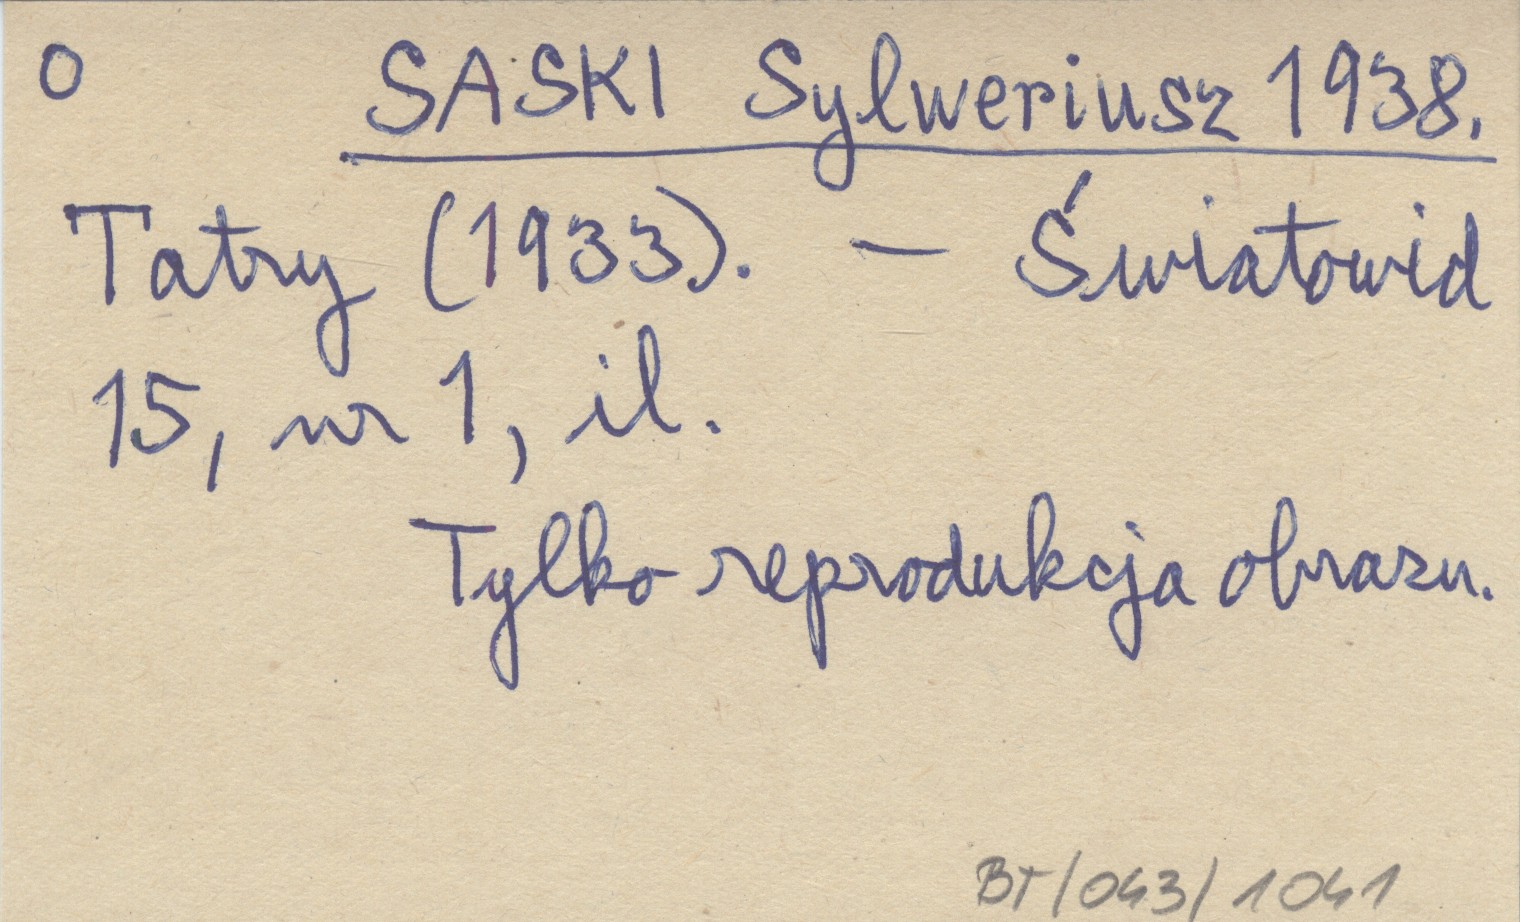 O SASKI Sylweriusz 1938.
Tatry (1933). — Światowid
15, nr 1, il.
Tylko reprodukcja obrazu.
BT/043/1041